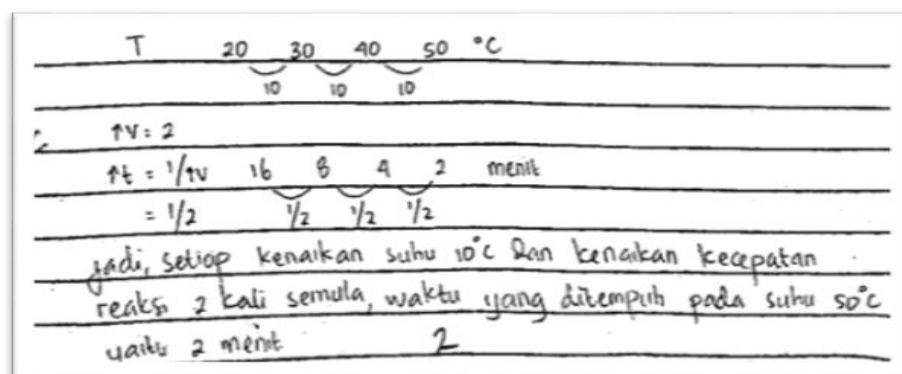 T 20 30 40 50 °C
10 10 10
↑v = 2
↑t = 1/↑v 16 8 4 2 menit
= 1/2 1/2 1/2 1/2
jadi, setiap kenaikan suhu 10°C dan kenaikan kecepatan
reaksi 2 kali semula, waktu yang ditempuh pada suhu 50°C
yaitu 2 menit 2